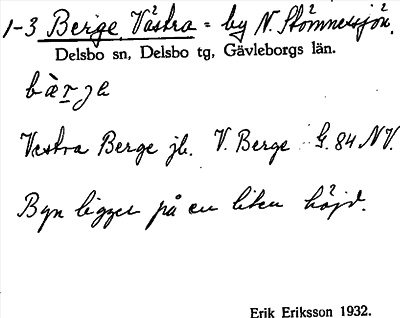 1-3 Berge, Västra = by N. Stömnesjön.
Delsbo sn, Delsbo tg, Gävleborgs län.
bàrja
Vestra Berge jb. V. Berge G. 84 NV.
Byn ligger på en liten höjd.
Erik Eriksson 1932.